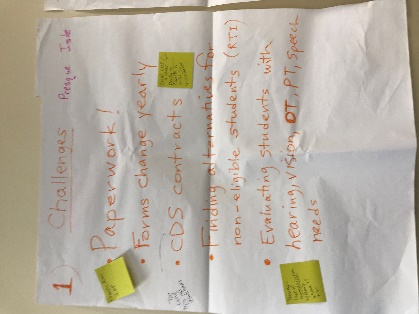 1) Challenges
Presque Isle
• Paperwork!
• Forms change yearly
• CDS contracts
• Finding alternatives for
non-eligible students (RTI)
• Evaluating students with
hearing, vision, OT, PT, Speech
needs